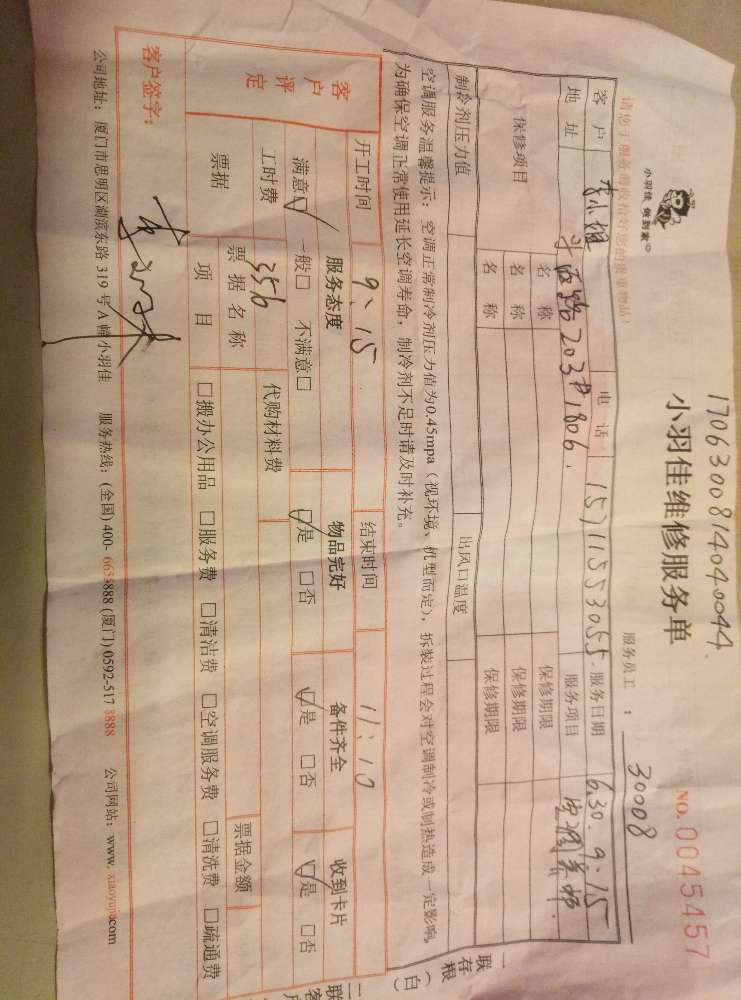 1706300814040044.
小羽佳 做到家
小羽佳维修服务单
NO.0045457
服务员工 : 30008
请您于服务前收拾好您的贵重物品!
客户 李小姐 电话 15711553055. 服务日期 6.30. 9:15
地址 斗西路203#1806. 服务项目 空调
保修项目 名称 保修期限
名称 保修期限
名称 保修期限
制冷剂压力值 出风口温度
空调服务温馨提示: 空调正常制冷剂压力值为0.45mpa(视环境、机型而定), 拆装过程会对空调制冷或制热造成一定影响,
为确保空调正常使用延长空调寿命, 制冷剂不足时请及时补充。
开工时间 9:15 结束时间 11:10
客户评定 服务态度 物品完好 备件齐全 收到卡片
满意□ 一般□ 不满意□ □是 □否 □是 □否 □是 □否
工时费 356 代购材料费
票据 票据名称 票据金额
项目 □搬办公用品 □服务费 □清洁费 □空调服务费 □清洗费 □疏通费
客户签字:
公司地址: 厦门市思明区湖滨东路 319 号 A 幢小羽佳 服务热线: (全国) 400-6655888 (厦门) 0592-5178888 公司网站: www.xiaoyujia.com
一联存根(白)
二联客户